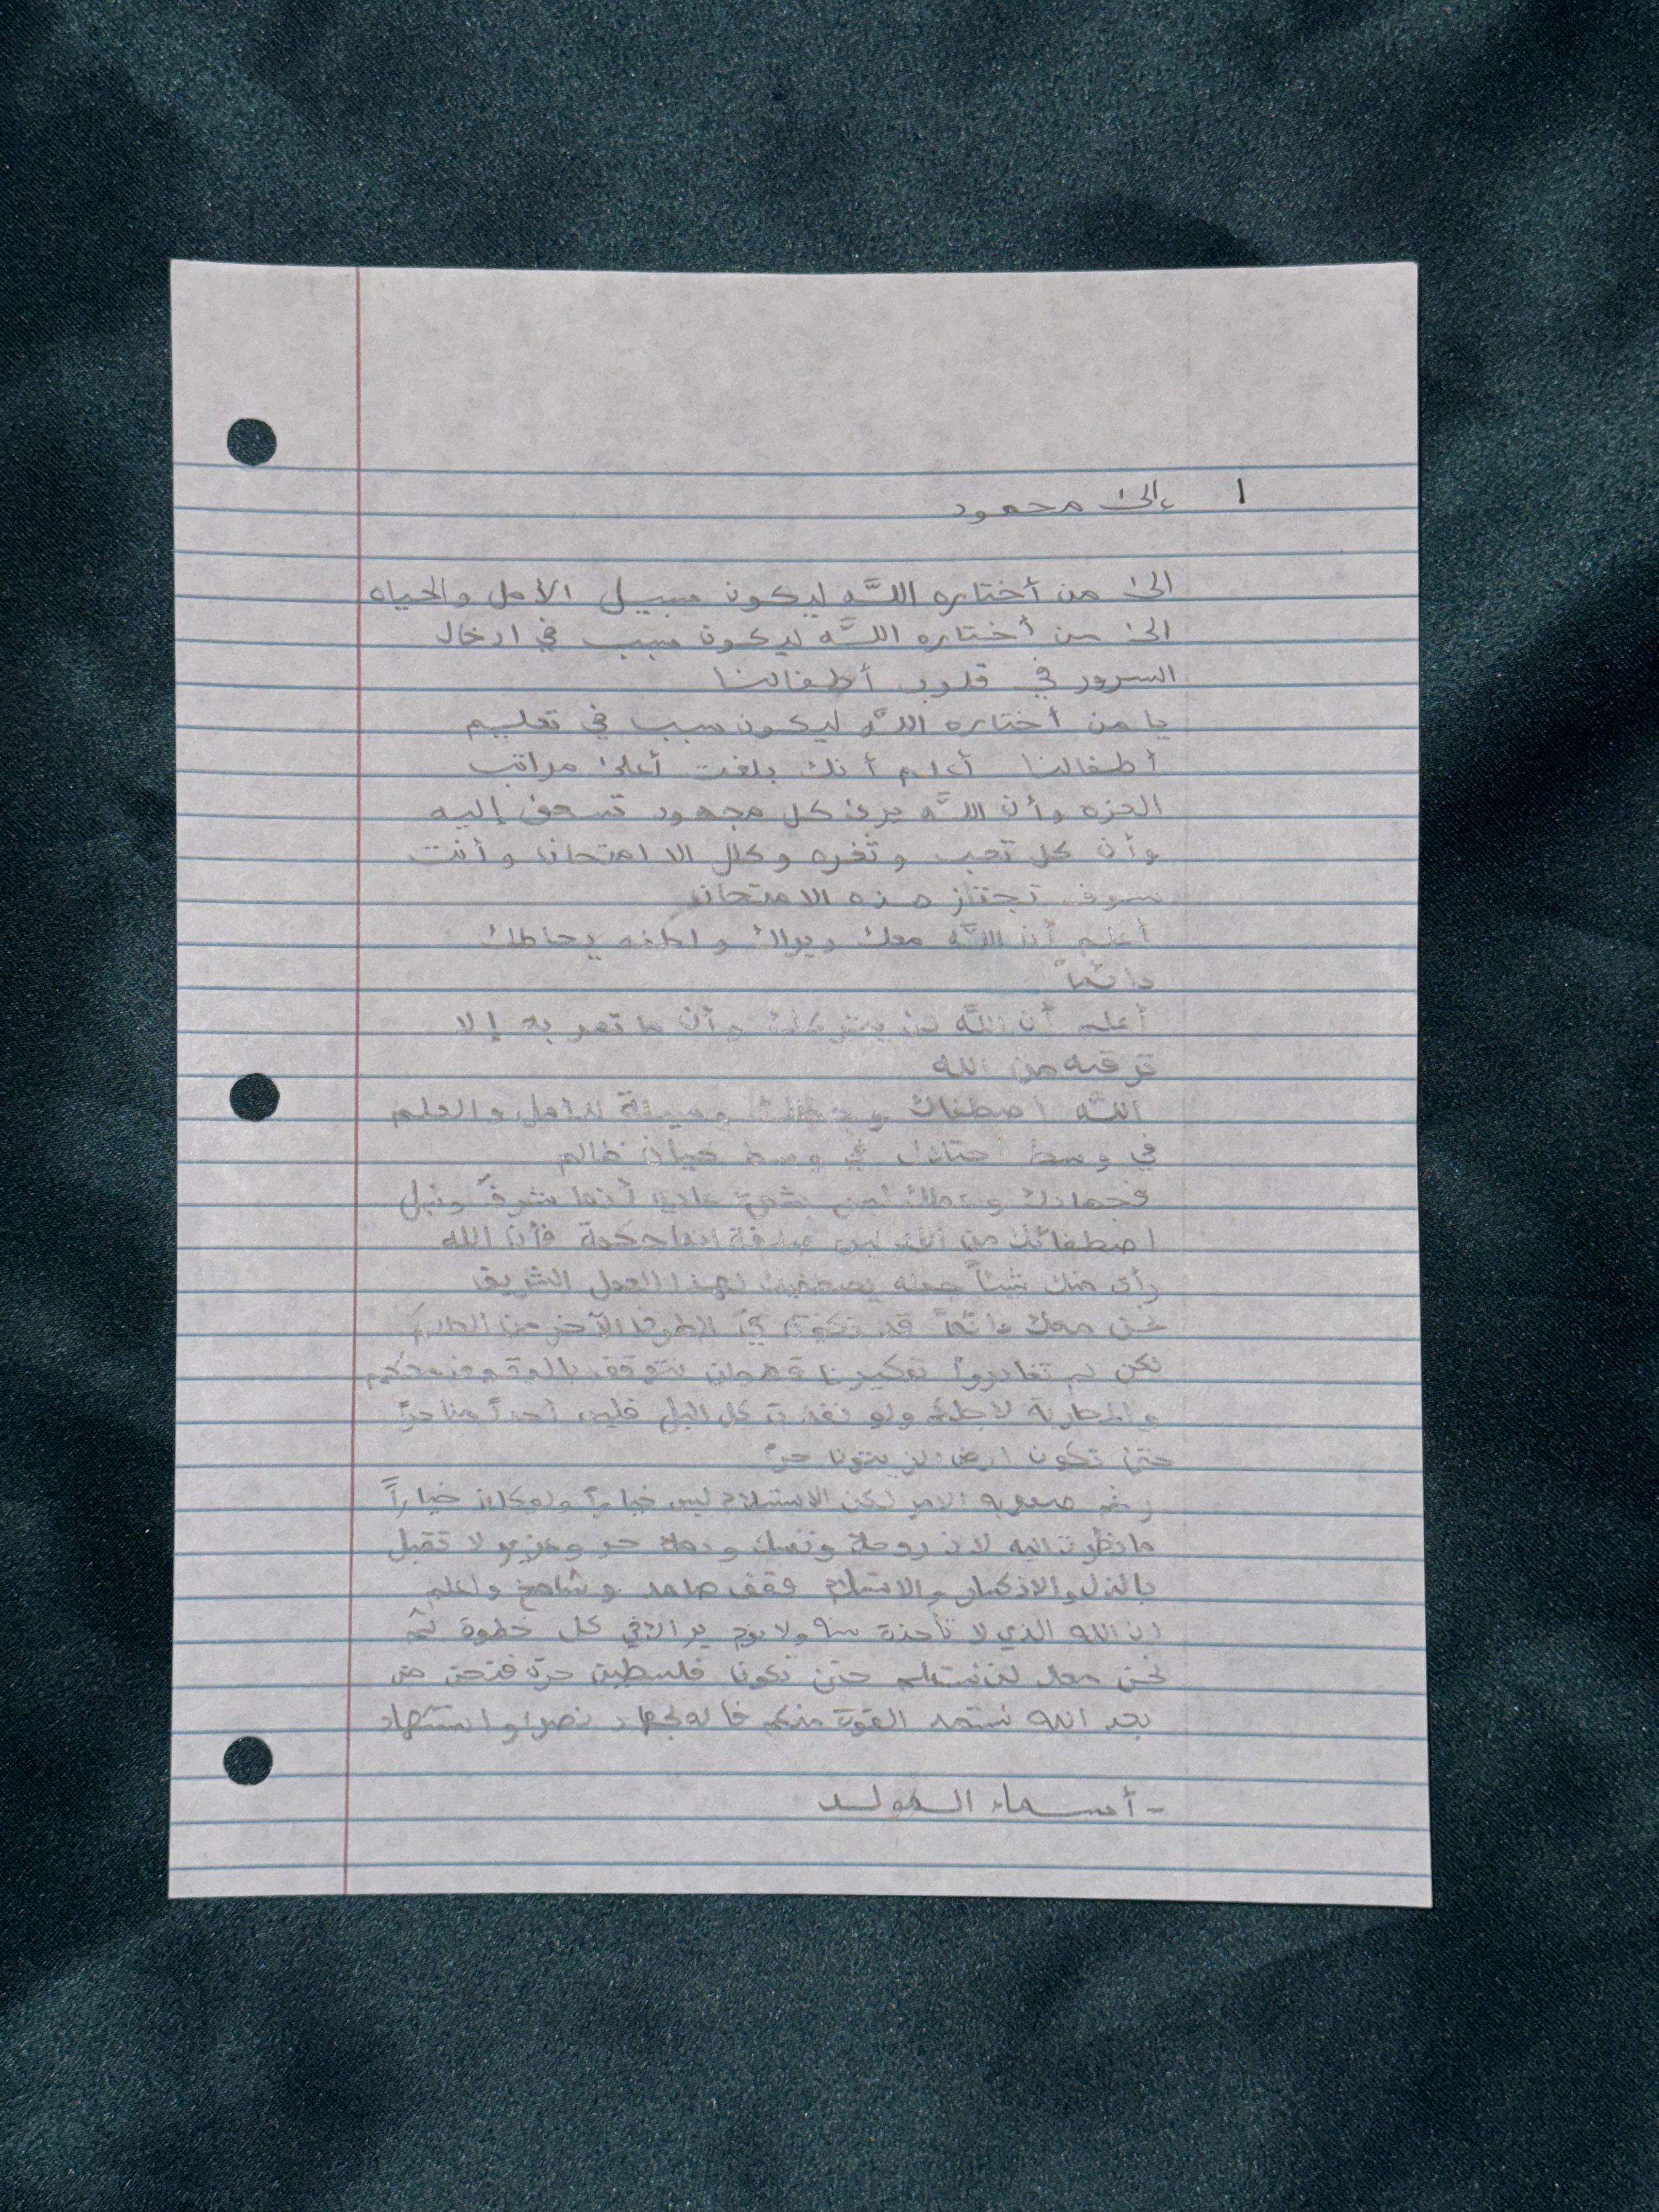 إلى محمود ١
الى من أختاره اللَّه ليكون سبيل الأمل والحياه
الى من أختاره اللَّه ليكون سبب في ادخال
السرور في قلوب أطفالنا
يا من أختاره اللَّه ليكون سبب في تعليم
أطفالنا أعلم أنك بلغت أعلى مراتب
العزه وأن اللَّه يرى كل مجهود تسعى إليه
وأن كل تعب و الا امتحان وأنت
سوف تجتاز هذه الامتحان
أعلم أن اللَّه معك ويراك ولطفه يحاطك
دائماً
أعلم أن اللَّه لن يتركك وأن ما تمر به إلا
ترقيه من الله
اللَّه اصطفاك وجعلك وسيلة للأمل والعلم
في وسط احتلال في وسط ظالم
فجهادك وعملك ليس عادي أنما شرفً ونبل
اصطفائك من اللَّه ليس صدفة انما حكمة فأن الله
رأى منك شيئاً جعله يصطفيك لهذا العمل الشريف
نحن معك دائماً قد نكون في الطرف الآخر من العالم
لكن لم تغادروا تفكيرنا نتوقف
والمحاربة لاجلكم ولو كل فليس أحداً منا حرً
حتى تكون ارض الزيتون حرً
رغم صعوبه الامر لكن الاستسلام ليس خياراً ولو كان خياراً
ما نظرت اليه لان روحك ونفسك ودمك حر وعزيز لا تقبل
بالذل والانكسار والاستسلام فقف صامد وشامخ واعلم
ان الله الذي لا تأخذه سنه ولا نوم يراك في كل خطوة
نحن معك لن نستسلم حتى تكون فلسطين حرة فنحن من
بعد الله نستمد القوة منكم نصر او استشهاد
- أسماء المولد